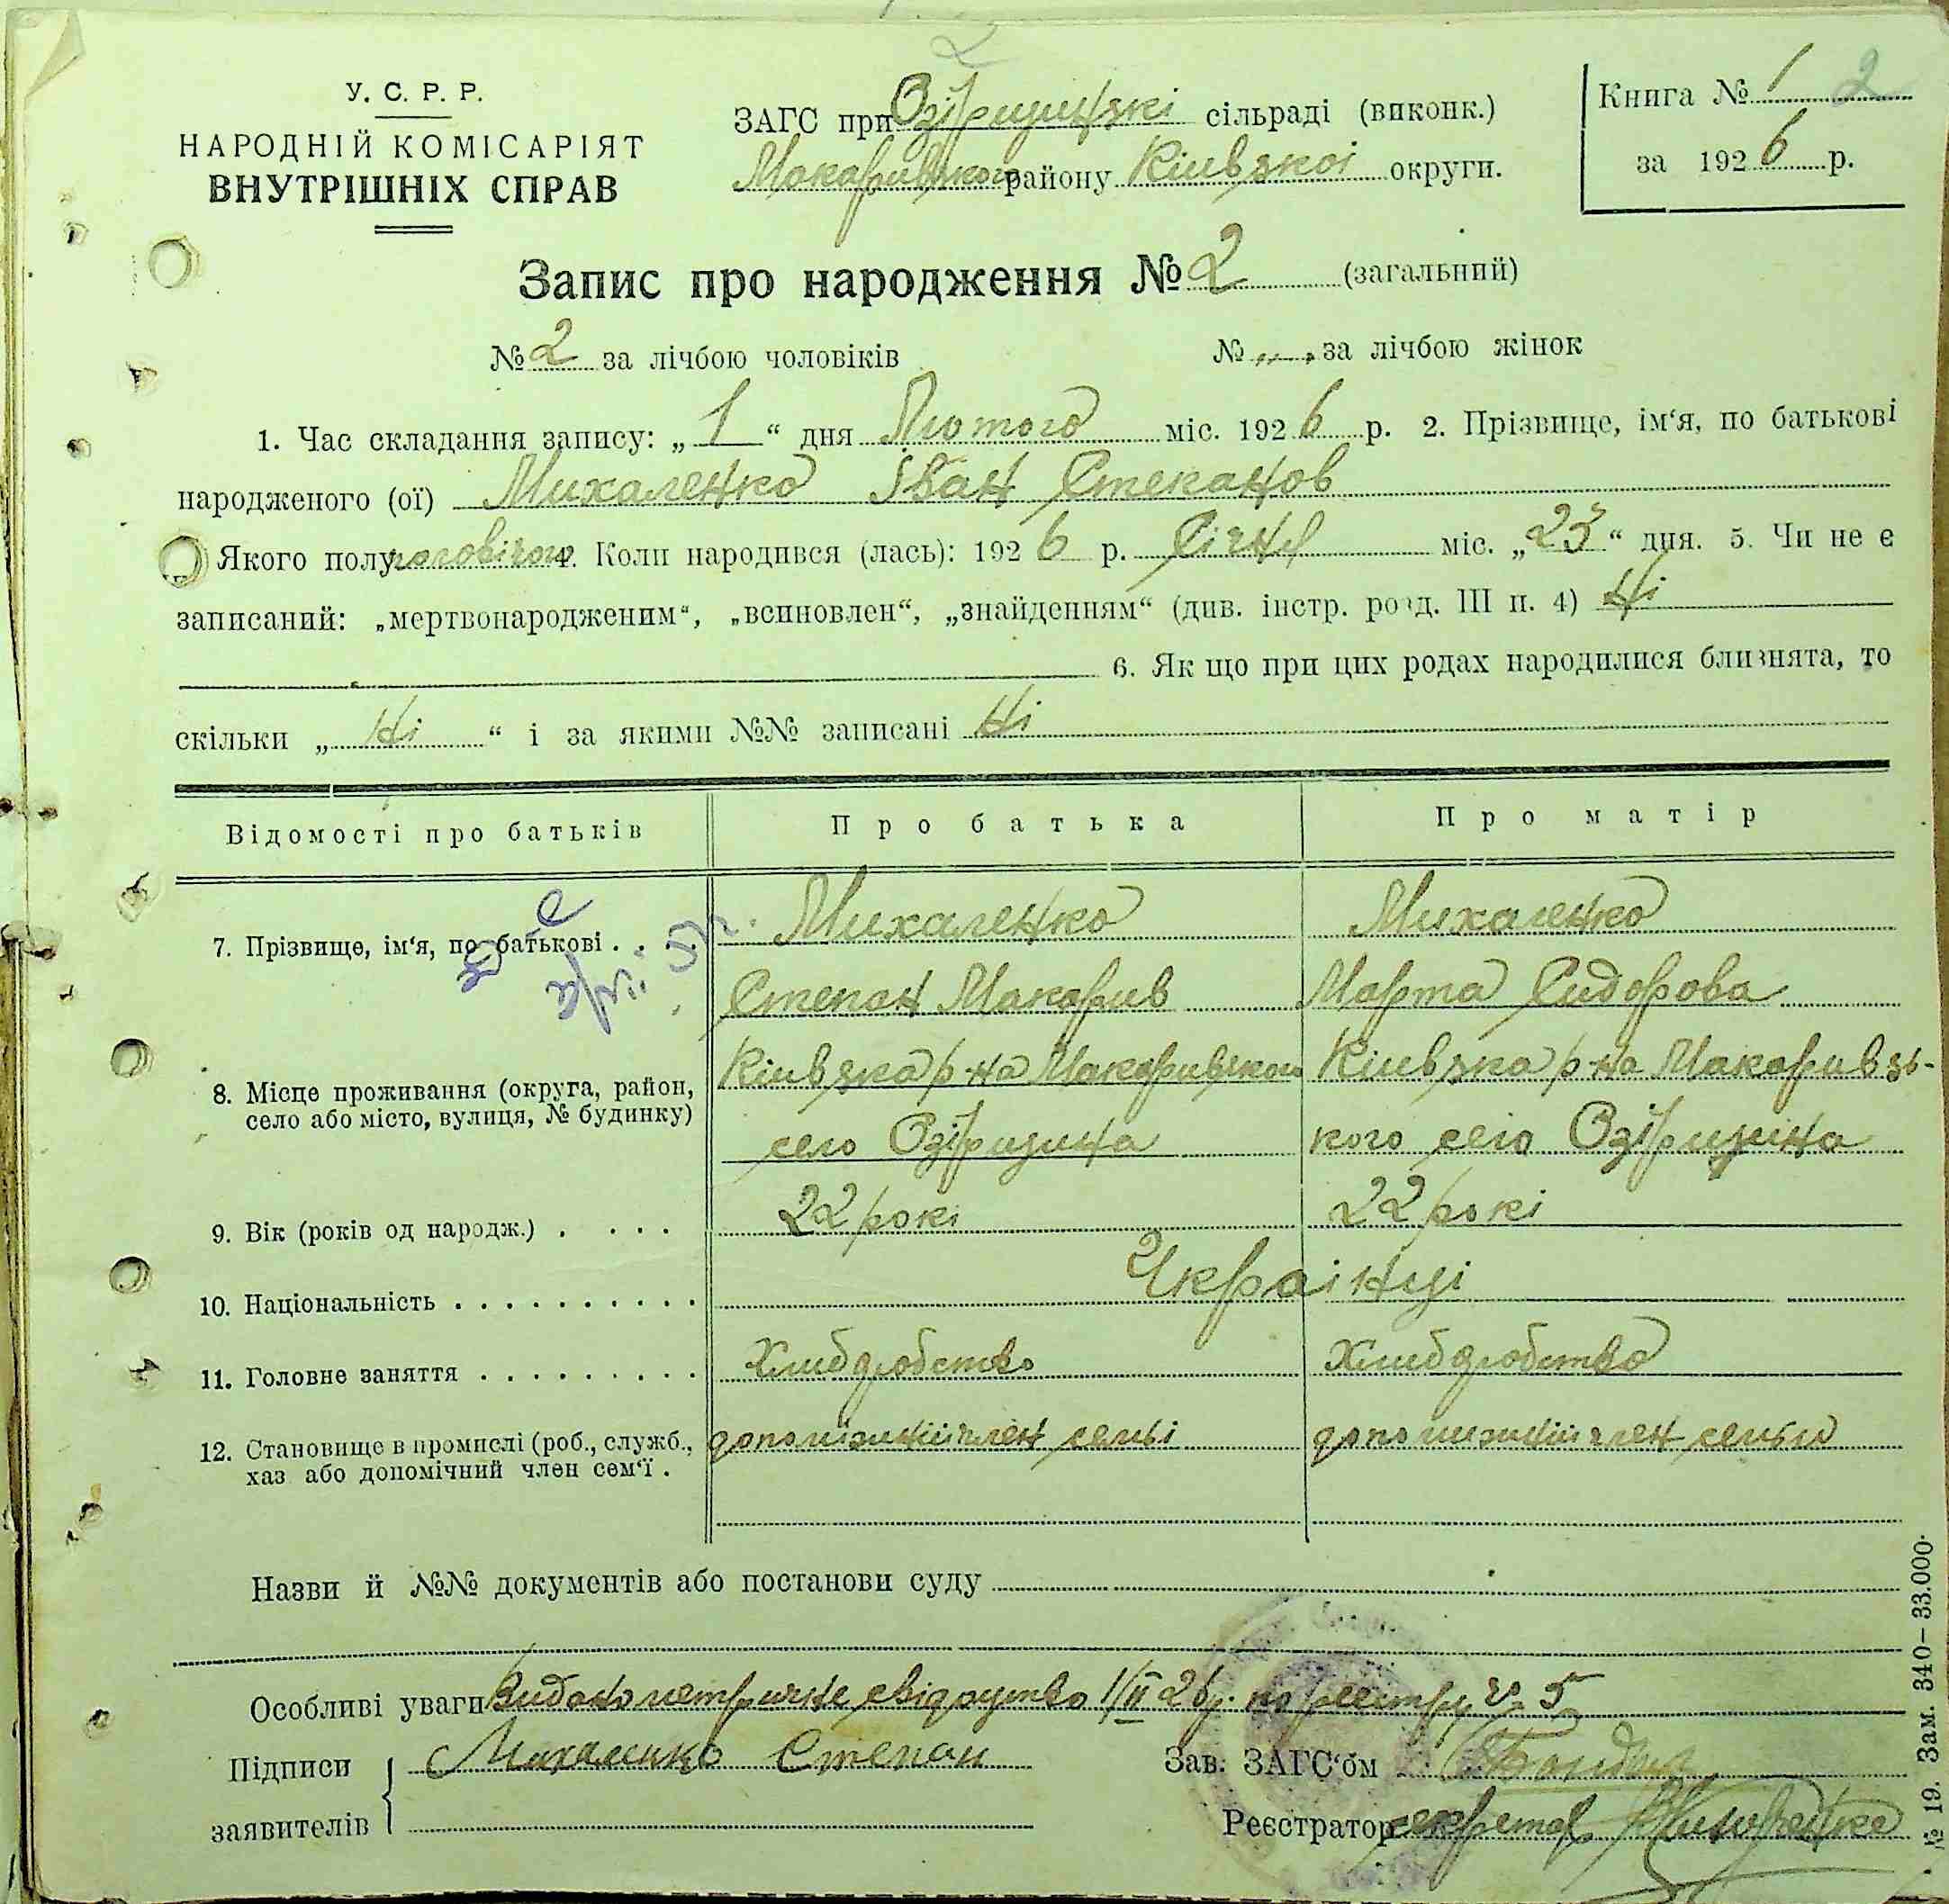 2
У. С. Р. Р.
НАРОДНІЙ КОМІСАРІЯТ
ВНУТРІШНІХ СПРАВ
ЗАГС при Озірщицькі сільраді (виконк.)
Макаривского району Кіивзкоі округи.
Книга № 1 2
за 1926 р.
Запис про народження № 2 (загальний)
№ 2 за лічбою чоловіків № „ за лічбою жінок
1. Час складання запису: „1“ дня Лютого міс. 1926 р. 2. Прізвище, ім‘я, по батькові
народженого (ої) Михаленко Іван Степанов
Якого полу чоловічого 4. Коли народився (лась): 1926 р. Січня міс. „23“ дня. 5. Чи не є
записаний: „мертвонародженим“, „всиновлен“, „знайденням“ (див. інстр. розд. III п. 4) Ні
6. Як що при цих родах народилися близнята, то
скільки „ Ні “ і за якими №№ записані Ні
Відомості про батьків Про батька Про матір
7. Прізвище, ім‘я, по батькові . . Михаленко Михаленко
Степан Макарив Марта Сидорова
8. Місце проживання (округа, район, Кіивзка р-на Макаривзкого Кіивзка р-на Макаривзь-
село або місто, вулиця, № будинку) село Озірщина кого село Озірщина
9. Вік (років од народж.) . . . . 22 рокі 22 рокі
10. Національність . . . . . . . . . . Украінці
11. Головне заняття . . . . . . . . . Хлибдробство Хлибдробство
12. Становище в промислі (роб., служб., допоміжний член семьі допомижний член семьи
хаз або допомічний член сем‘ї .
Назви й №№ документів або постанови суду
Особливі уваги Видано метричне свідоцтво 1/II 26р. по реестру № 5
Підписи Михаленко Степан Зав. ЗАГС‘ом
заявителів Реєстратор секретар
№ 19. Зам. 340–33.000.